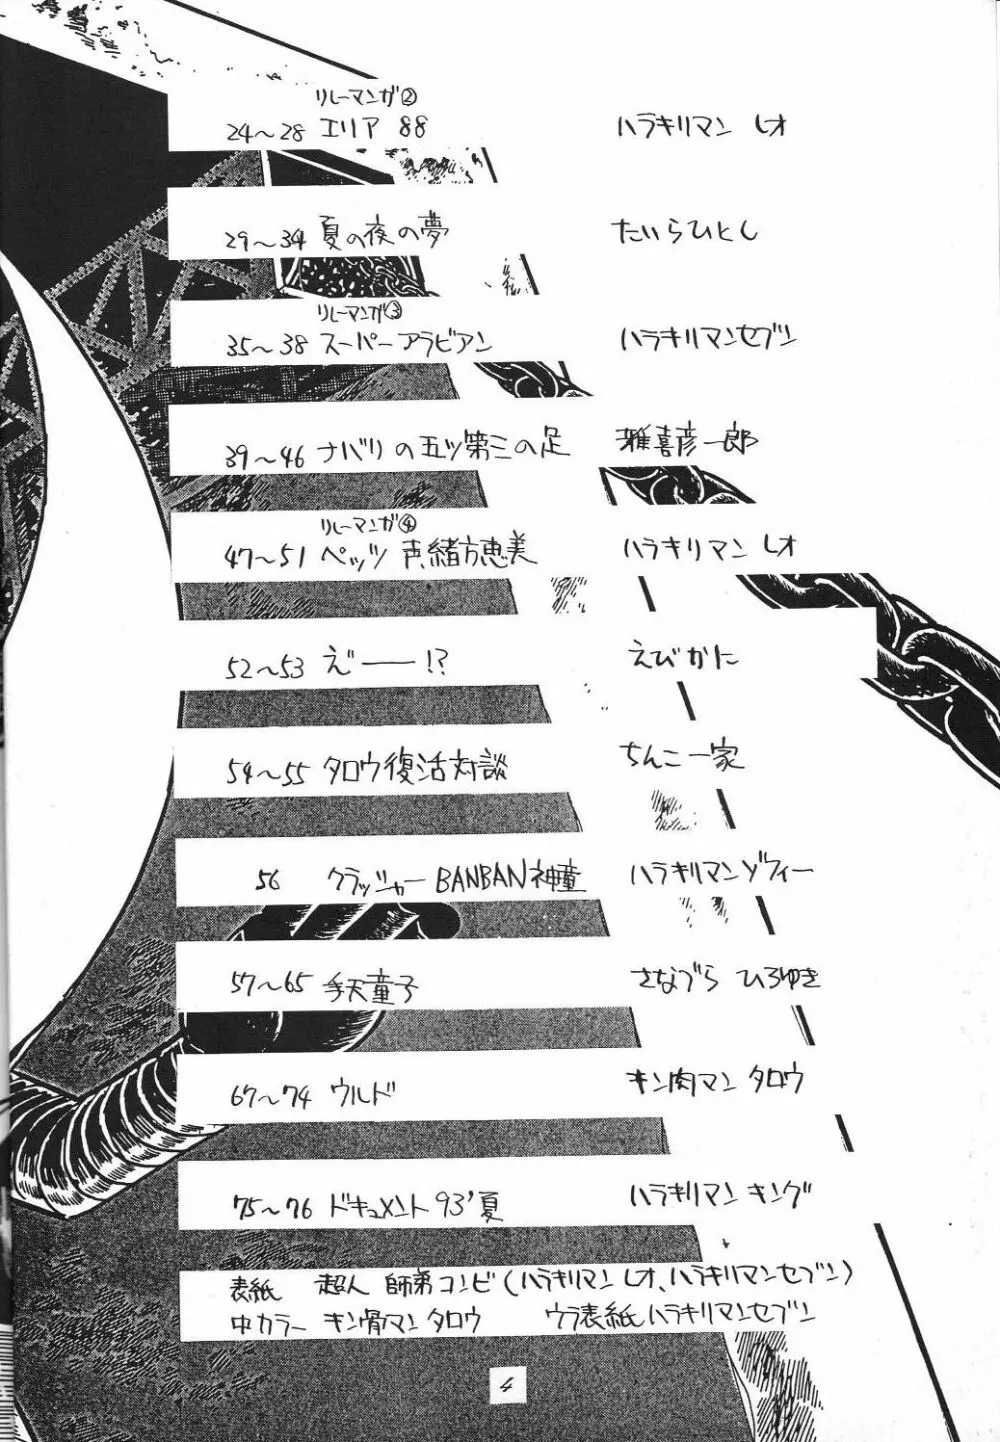 リレーマンガ②
24〜28 エリア 88 ハラキリマン レオ
29〜34 夏の夜の夢 たいらひとし
リレーマンガ③
35〜38 スーパーアラビアン ハラキリマンセブン
39〜46 ナバリの五ツ第三の足 雅喜彦一郎
リレーマンガ④
47〜51 ペッツ 声緒方恵美 ハラキリマン レオ
52〜53 え゛ー――!? えびかに
54〜55 タロウ復活対談 ちんこ一家
56 クラッシャー BANBAN神童 ハラキリマンゾフィー
57〜65 手天童子 さなづら ひろゆき
67〜74 ウルド キン肉マン タロウ
75〜76 ドキュメント 93'夏 ハラキリマン キング
表紙 超人 師弟コンビ(ハラキリマン レオ、ハラキリマンセブン)
中カラー キン骨マン タロウ ウラ表紙 ハラキリマンセブン
4